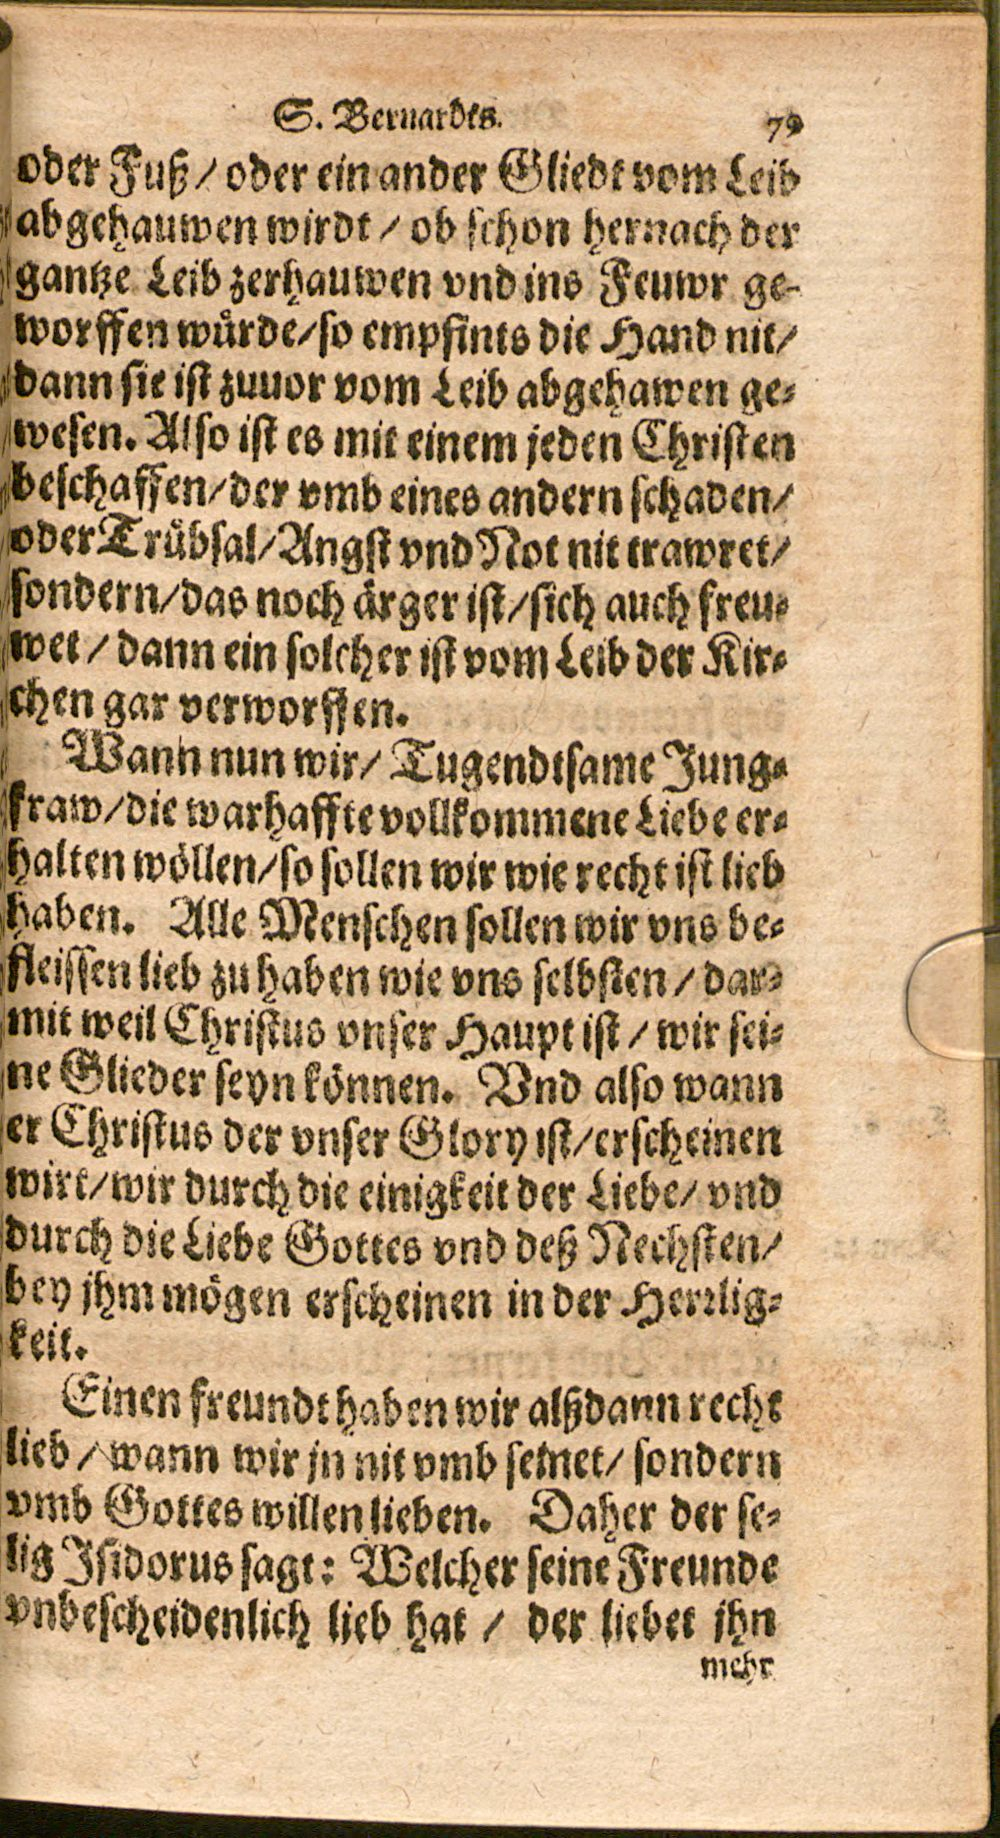 S. Bernardts. 79
oder Fuß / oder ein ander Gliedt vom Leib
abgehauwen wirdt / ob schon hernach der
gantze Leib zerhauwen vnd ins Feuwr ge-
worffen würde / so empfints die Hand nit /
dann sie ist zuuor vom Leib abgehawen ge-
wesen. Also ist es mit einem jeden Christen
beschaffen / der vmb eines andern schaden /
oder Trübsal / Angst vnd Not nit trawret /
sondern / das noch ärger ist / sich auch freu-
wet / dann ein solcher ist vom Leib der Kir-
chen gar verworffen.
Wann nun wir / Tugendtsame Jung-
fraw / die warhaffte vollkommene Liebe er-
halten wöllen / so sollen wir wie recht ist lieb
haben. Alle Menschen sollen wir vns be-
fleissen lieb zu haben wie vns selbsten / dar-
mit weil Christus vnser Haupt ist / wir sei-
ne Glieder seyn können. Vnd also wann
er Christus der vnser Glory ist / erscheinen
wirt / wir durch die einigkeit der Liebe / vnd
durch die Liebe Gottes vnd deß Nechsten /
bey jhm mögen erscheinen in der Herrlig-
keit.
Einen freundt haben wir alßdann recht
lieb / wann wir jn nit vmb seinet / sondern
vmb Gottes willen lieben. Daher der se-
lig Isidorus sagt: Welcher seine Freunde
vnbescheidenlich lieb hat / der liebet jhn
mehr